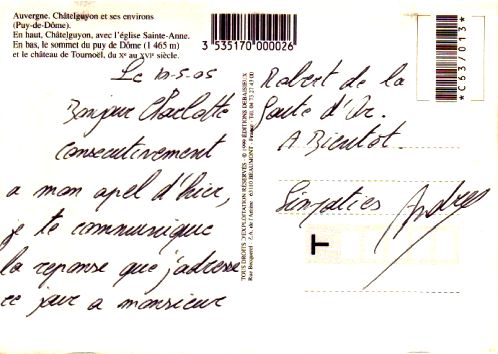 Auvergne. Châtelguyon et ses environs
(Puy-de-Dôme)
En haut, Châtelguyon, avec l'église Sainte-Anne.
En bas, le sommet du puy de Dôme (1 465 m)
et le château de Tournoël, du Xe au XVIe siècle.
3 535170 000026
*C63/013*
Le 10-5-05
Bonjour Charlotte
Consecutivement
a mon apel d'hier,
je te communique
la reponse que j'adresse
ce jour a monsieur
TOUS DROITS D'EXPLOITATION RÉSERVÉS - © 1999 ÉDITIONS DEBAISIEUX
Rue Becquerel - Z.A. de l'Artière - 63110 BEAUMONT - France - Tél. 04 73 27 43 00
Robert de la
Porte d'Or.
A Bientot
Simpaties Andrep
T